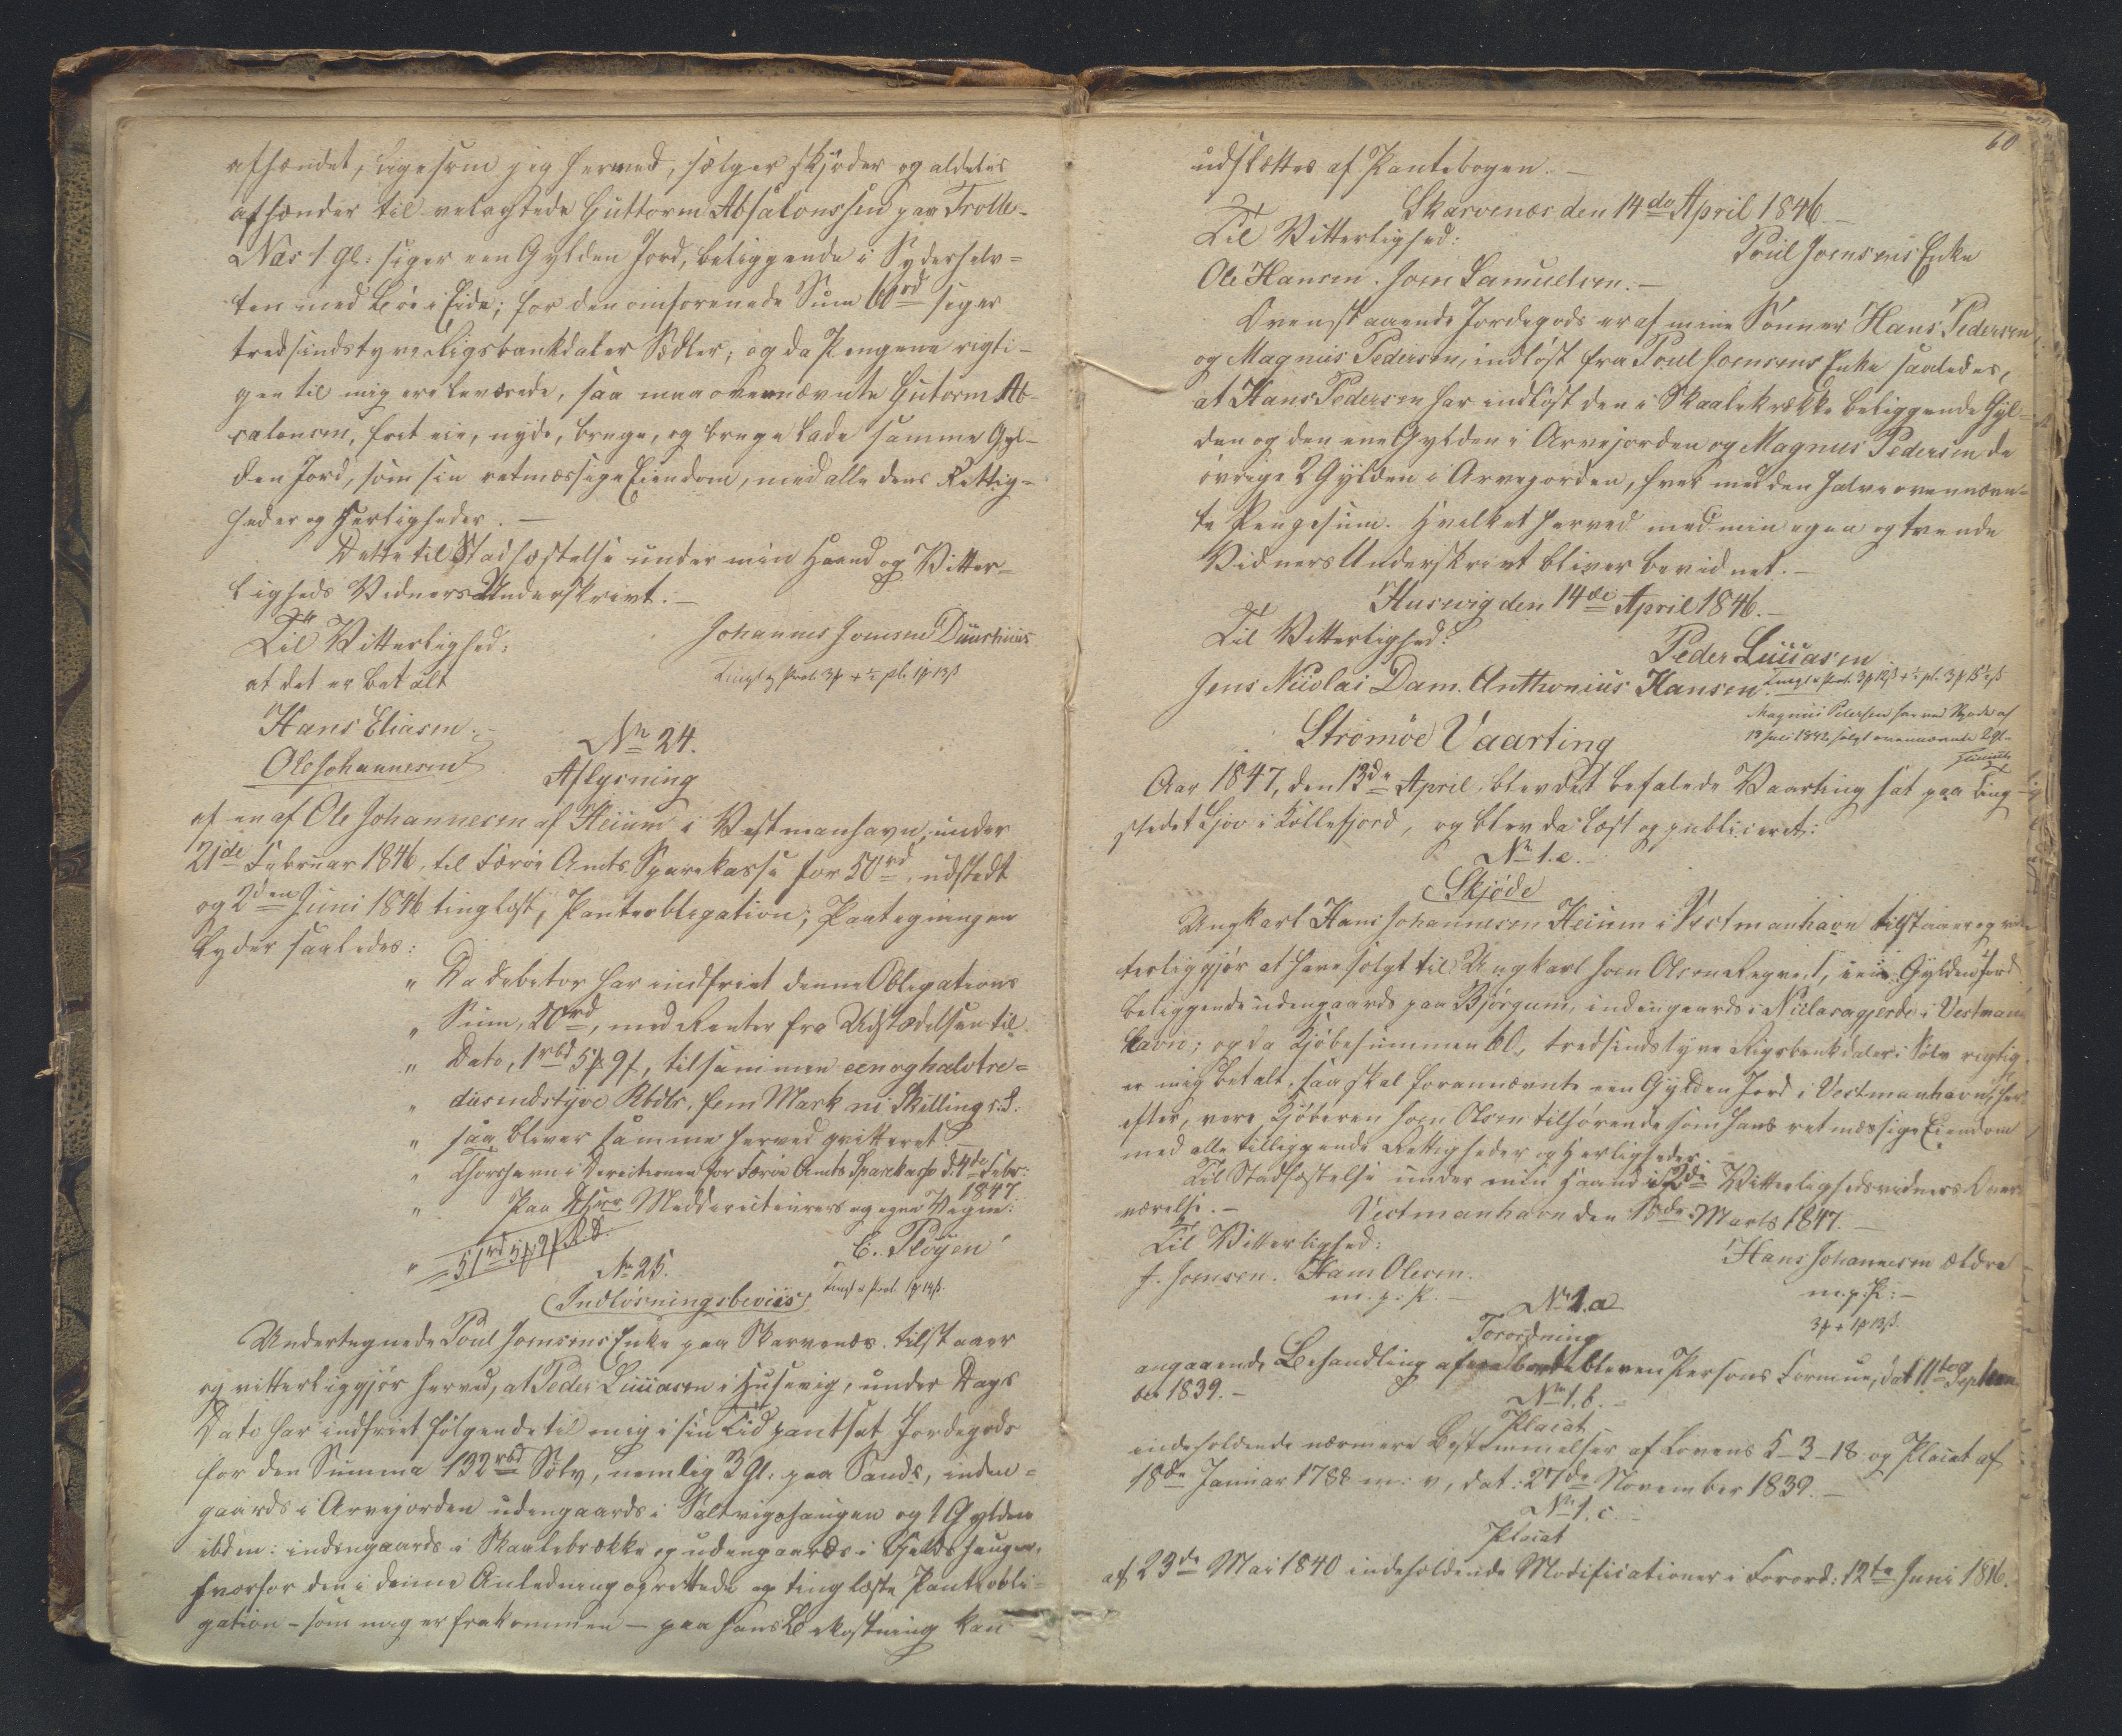 afhændet, ligesom jeg herved, sælger skjøder og aldeles
afhænder til velagtede Guttorm Absalonssen paa Trolle-
Næs 1 Gl: siger een Gylden Jord, beliggende i Syderhelv-
ten med Bøe i Eide; for den omforenede Sum 60 rd siger
tredsindstyve Rigsbankdaler Sedler; og da Pengene rigti-
gen til mig ere leverede, saa maa ovennævnte Gutorm Ab-
salonsen, frit eie, nyde, bruge, og bruge lade samme Gyl-
den Jord, som sin retmæssige Eiendom, med alle dens Rettig-
heder og Herligheder. —
Dette til Stadfæstelse under min Haand og Vitter-
ligheds Vidners Underskrivt. —
Til Vitterlighed:
Johannes Joensen Duurhuus
at det er betalt
Hans Eliasen.
Ole Johannesen
No 24.
Aflysning
af en af Ole Johannesen af Heium i Vestmanhavn, under
21de Februar 1846, til Færøe Amts Sparekasse for 50 rd, udstedt
og 2den Juni 1846 tinglæst, Panteobligation; Paategningen
lyder saaledes:
" Da Debitor har indfriet denne Obligations
" Sum, 50 rd, med Renter fra Udstædelsen til
" Dato, 1 rbd 5 ƒ 9 ƒ, tilsammen een og halvtre-
" dsindstyve Rbdlr, fem Mark ni Skilling r. S.
" saa bliver samme herved qvitteret. —
" Thorshavn i Directionen for Færøe Amts Sparekasse d. 4de Febr:
1847.
" Paa Medderecteurers og egne Vegne:
" 51 rd 5 ƒ 9 ƒ r. S.
C. Pløyen
No 25.
Indløsningsbeviis
Undertegnede Poul Joensens Enke paa Skarvenæs. tilstaaer
og vitterliggjør herved, at Peder Luuasen i Husevig, under Dags
Dato har indfriet følgende til mig i sin Tid pantsat Jordegods
for den Summa 132 rbd Sølv, nemlig 3 Gl: paa Sands, inden-
gaards i Arvejorden udengaards i Saltvigshaugen og 1 Gylden
ibdem: indengaards i Skaalebrekke og udengaards i haugen,
hvorfor den i denne Anledning oprettede og tinglæste Panteobli-
gation – som mig er frakommen – paa hans Bekostning kan
60
udslettes af Pantebogen. —
Skarvenæs den 14de April 1846. —
Til Vitterlighed:
Poul Joensens Enke
Ole Hansen. Joen Samuelsen. —
Ovenstaaende Jordegods er af mine Sønner Hans Pedersen
og Magnus Pedersen, indløst fra Poul Joensens Enke saaledes,
at Hans Pedersen har indløst den i Skaalebrekke beliggende Gyl-
den og den ene Gylden i Arvejorden og Magnus Pedersen de
øvrige 2 Gylden i Arvejorden, hver med den halve ovennævn-
te Pengesum. Hvilket herved med min egen og tvende
Vidners Underskrivt bliver bevidnet. —
Husevig den 14de April 1846. —
Til Vitterlighed:
Peder Luuasen
Jens Nicolai Dam. Anthonius Hansen.
Magnus Pedersen har ved Skjøde af
solgt ovennævnte 2 Gl.
Strømøe Vaarting
Aar 1847, den 13de April, blev det befalede Vaarting sat paa Ting-
stedet Sjov i Kollefjord, og blev da læst og publiceret:
No 1. e.
Skjøde
Ungkarl Hans Johannesen Heium i Vestmanhavn tilstaaer og vit-
terliggjør at have solgt til Ungkarl Joen Olsen een Gylden Jord
beliggende udengaards paa Bjørgum, indengaards i Niclasagjerde i Vestman-
havn; og da Kjøbesummen 60, tredsindstyve Rigsbankdaler i Sølv rigtig
er mig betalt, saa skal forannævnte een Gylden Jord i Vestmanhavn, her-
efter, være Kjøberen Joen Olsen tilhørende som hans retmæssige Eiendom
med alle tilliggende Rettigheder og Herligheder.
Til Stadfæstelse under min Haand i 2de Vitterlighedsvidners Over-
værelse. —
Vestmanhavn den 13de Marts 1847. —
Til Vitterlighed:
Hans Johannesen ældre
J. Joensen. Hans Olesen.
m. p. P. —
m. p. P. —
No 1. a
Forordning
angaaende Behandling af bortebleven Persons Formue, dat 11te Septem-
ber 1839. —
No 1. b. —
Placat
indeholdende nærmere Bestemmelser af Lovens 5–3–18 og Placat af
18de Januar 1788 m. v, dat: 27de November 1839. —
No 1. c —
Placat
af 23de Mai 1840 indeholdende Modificationer i Forord: 12te Juni 1816.